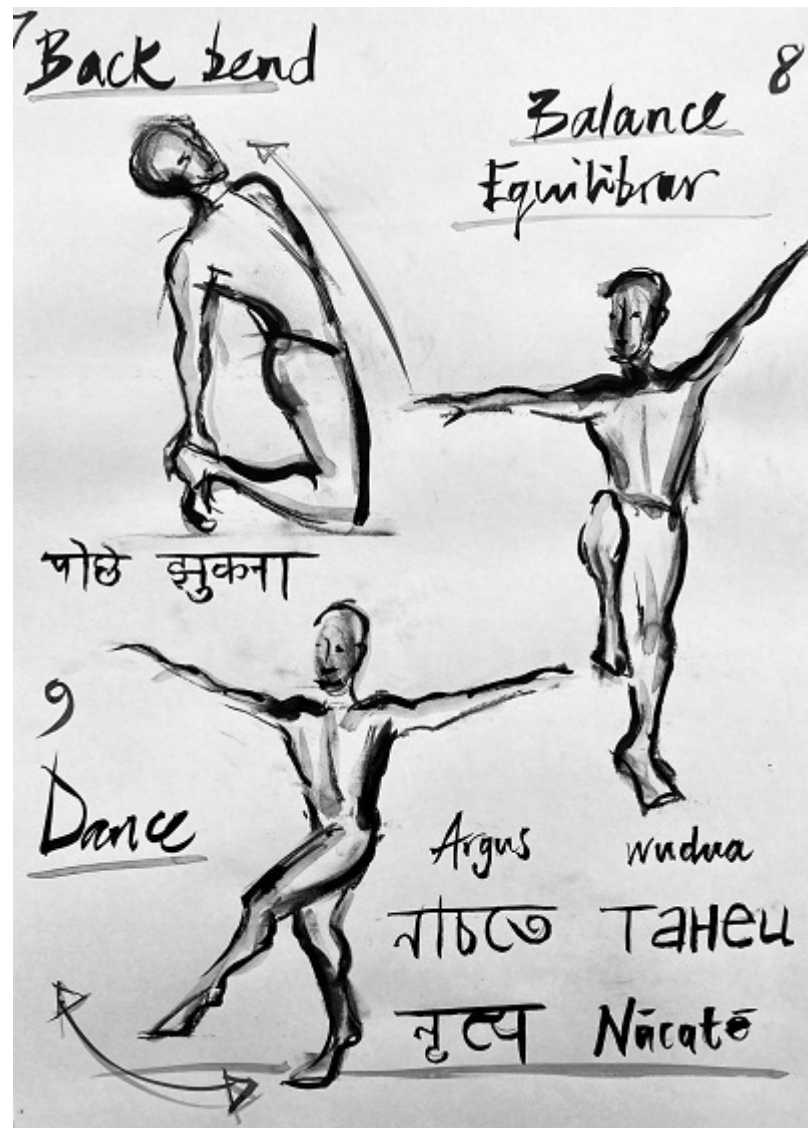 7
Back bend
8
Balance
Equilibrar
पीछे झुकना
9
Dance
Argus wudua
নাচতে танец
नृत्य Nācatē